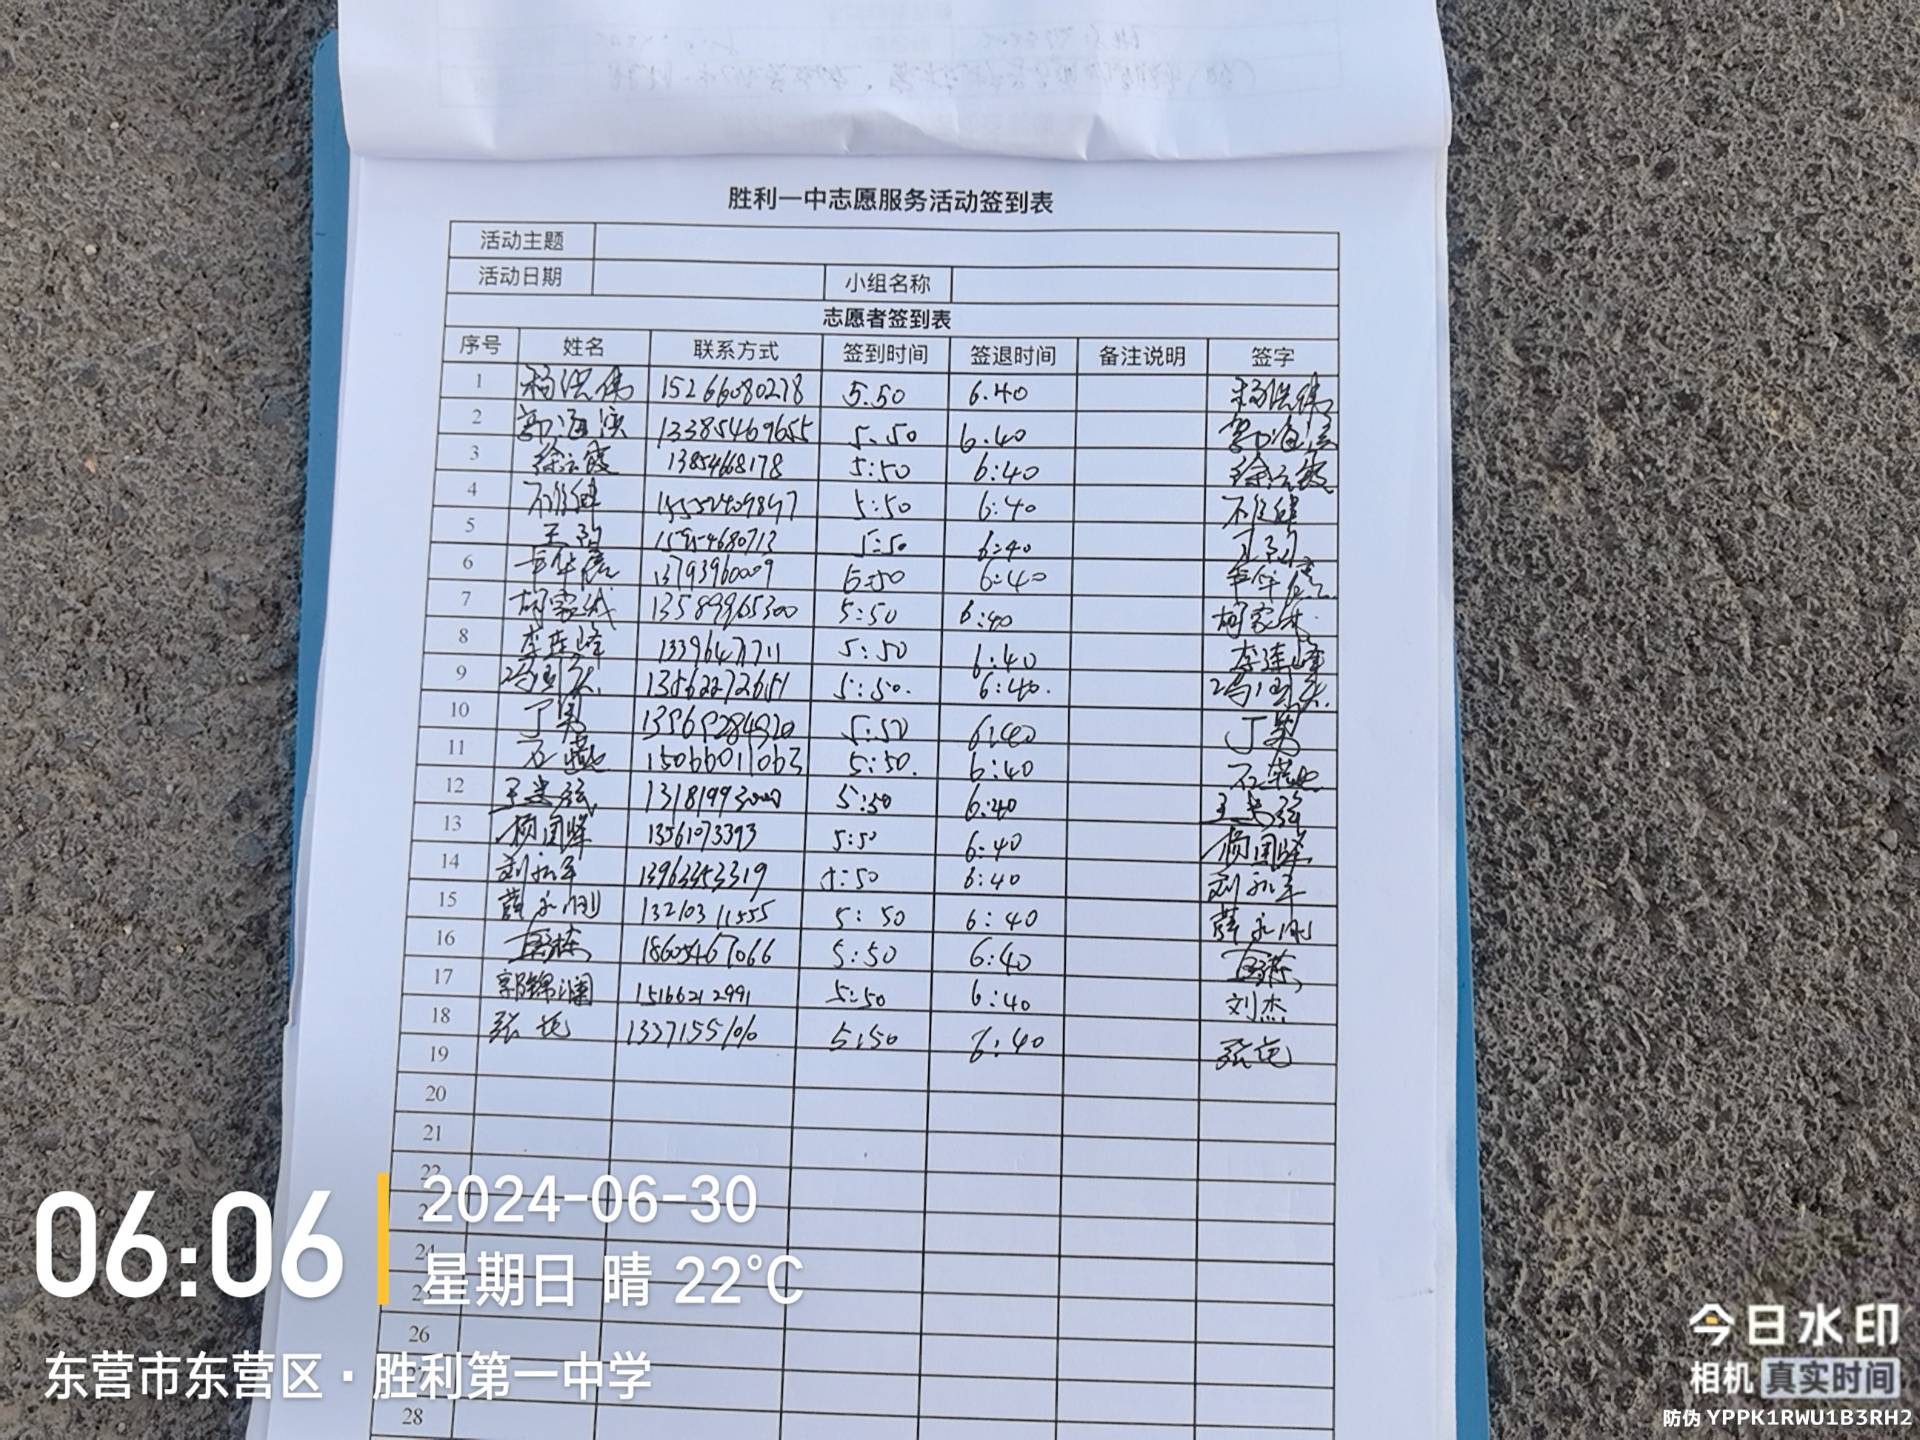 胜利一中志愿服务活动签到表
活动主题
活动日期 小组名称
志愿者签到表
序号 姓名 联系方式 签到时间 签退时间 备注说明 签字
1 杨洪伟 15266080278 5:50 6:40 杨洪伟
2 郭海滨 13385469655 5:50 6:40 郭海滨
3 徐云霞 1385468178 5:50 6:40 徐云霞
4 5:50 6:40
5 5:50 6:40
6 13793960009 5:50 6:40
7 胡家城 13589965300 5:50 6:40
8 李连峰 5:50 6:40 李连峰
9 13562272651 5:50. 6:40.
10 丁男 5:50 6:40 丁男
11 石燕 15066011063 5:50. 6:40 石燕
12 13181993000 5:50 6:40
13 杨国峰 13561073393 5:50 6:40 杨国峰
14 刘永军 13963353319 5:50 6:40 刘永军
15 薛永刚 13210311555 5:50 6:40 薛永刚
16 18605467066 5:50 6:40
17 郭锦澜 15166212991 5:50 6:40 刘杰
18 张艳 5:50 6:40 张艳
19
20
21
22
24
26
28
06:06
2024-06-30
星期日 晴 22°C
东营市东营区·胜利第一中学
今日水印
相机 真实时间
防伪 YPPK1RWU1B3RH2